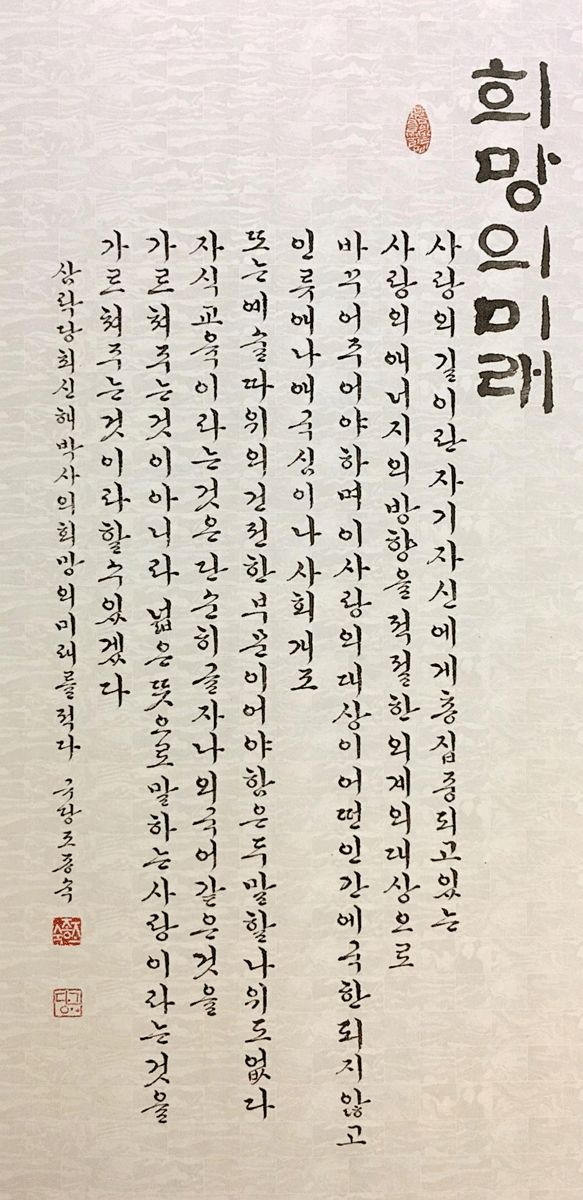 희망의미래
사랑의길이란자기자신에게총집중되고있는
사랑의에너지의방향을적절한외계의대상으로
바꾸어주어야하며이사랑의대상이어떤인간에국한되지않고
인류애나애국심이나사회개조
또는예술따위의건전한부분이어야함은두말할나위도없다
자식교육이라는것은단순히글자나외국어같은것을
가르쳐주는것이아니라넓은뜻으로말하는사랑이라는것을
가르쳐주는것이라할수있겠다
삼락당최신해박사의희망의미래를적다 조종숙